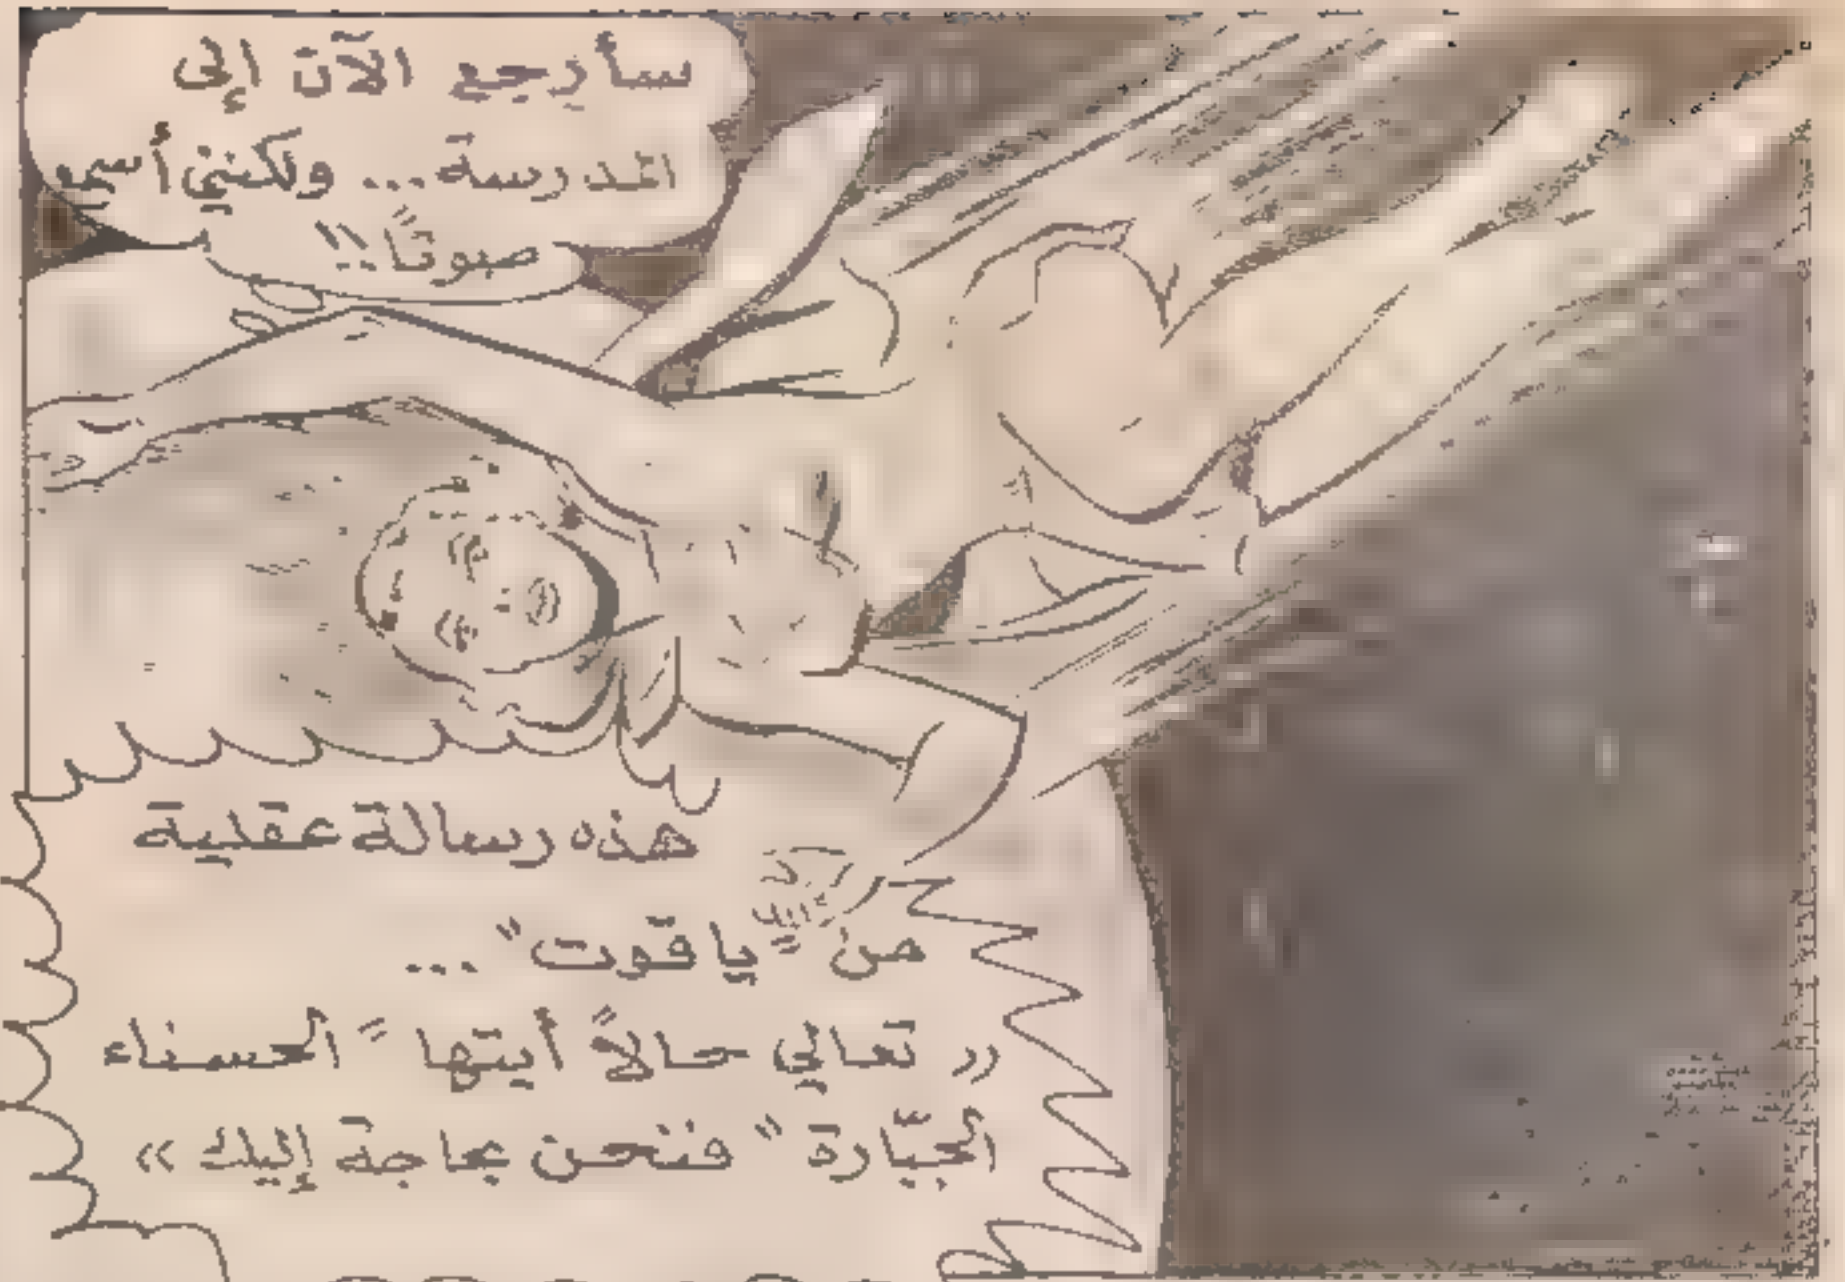 سأرجع الآن إلى
المدرسة... ولكنني أسمع
صوتًا!!
هذه رسالة عقلية
من "ياقوت"...
«تعالي حالاً أيتها "الحسناء
الجبّارة" فنحن بحاجة إليك»